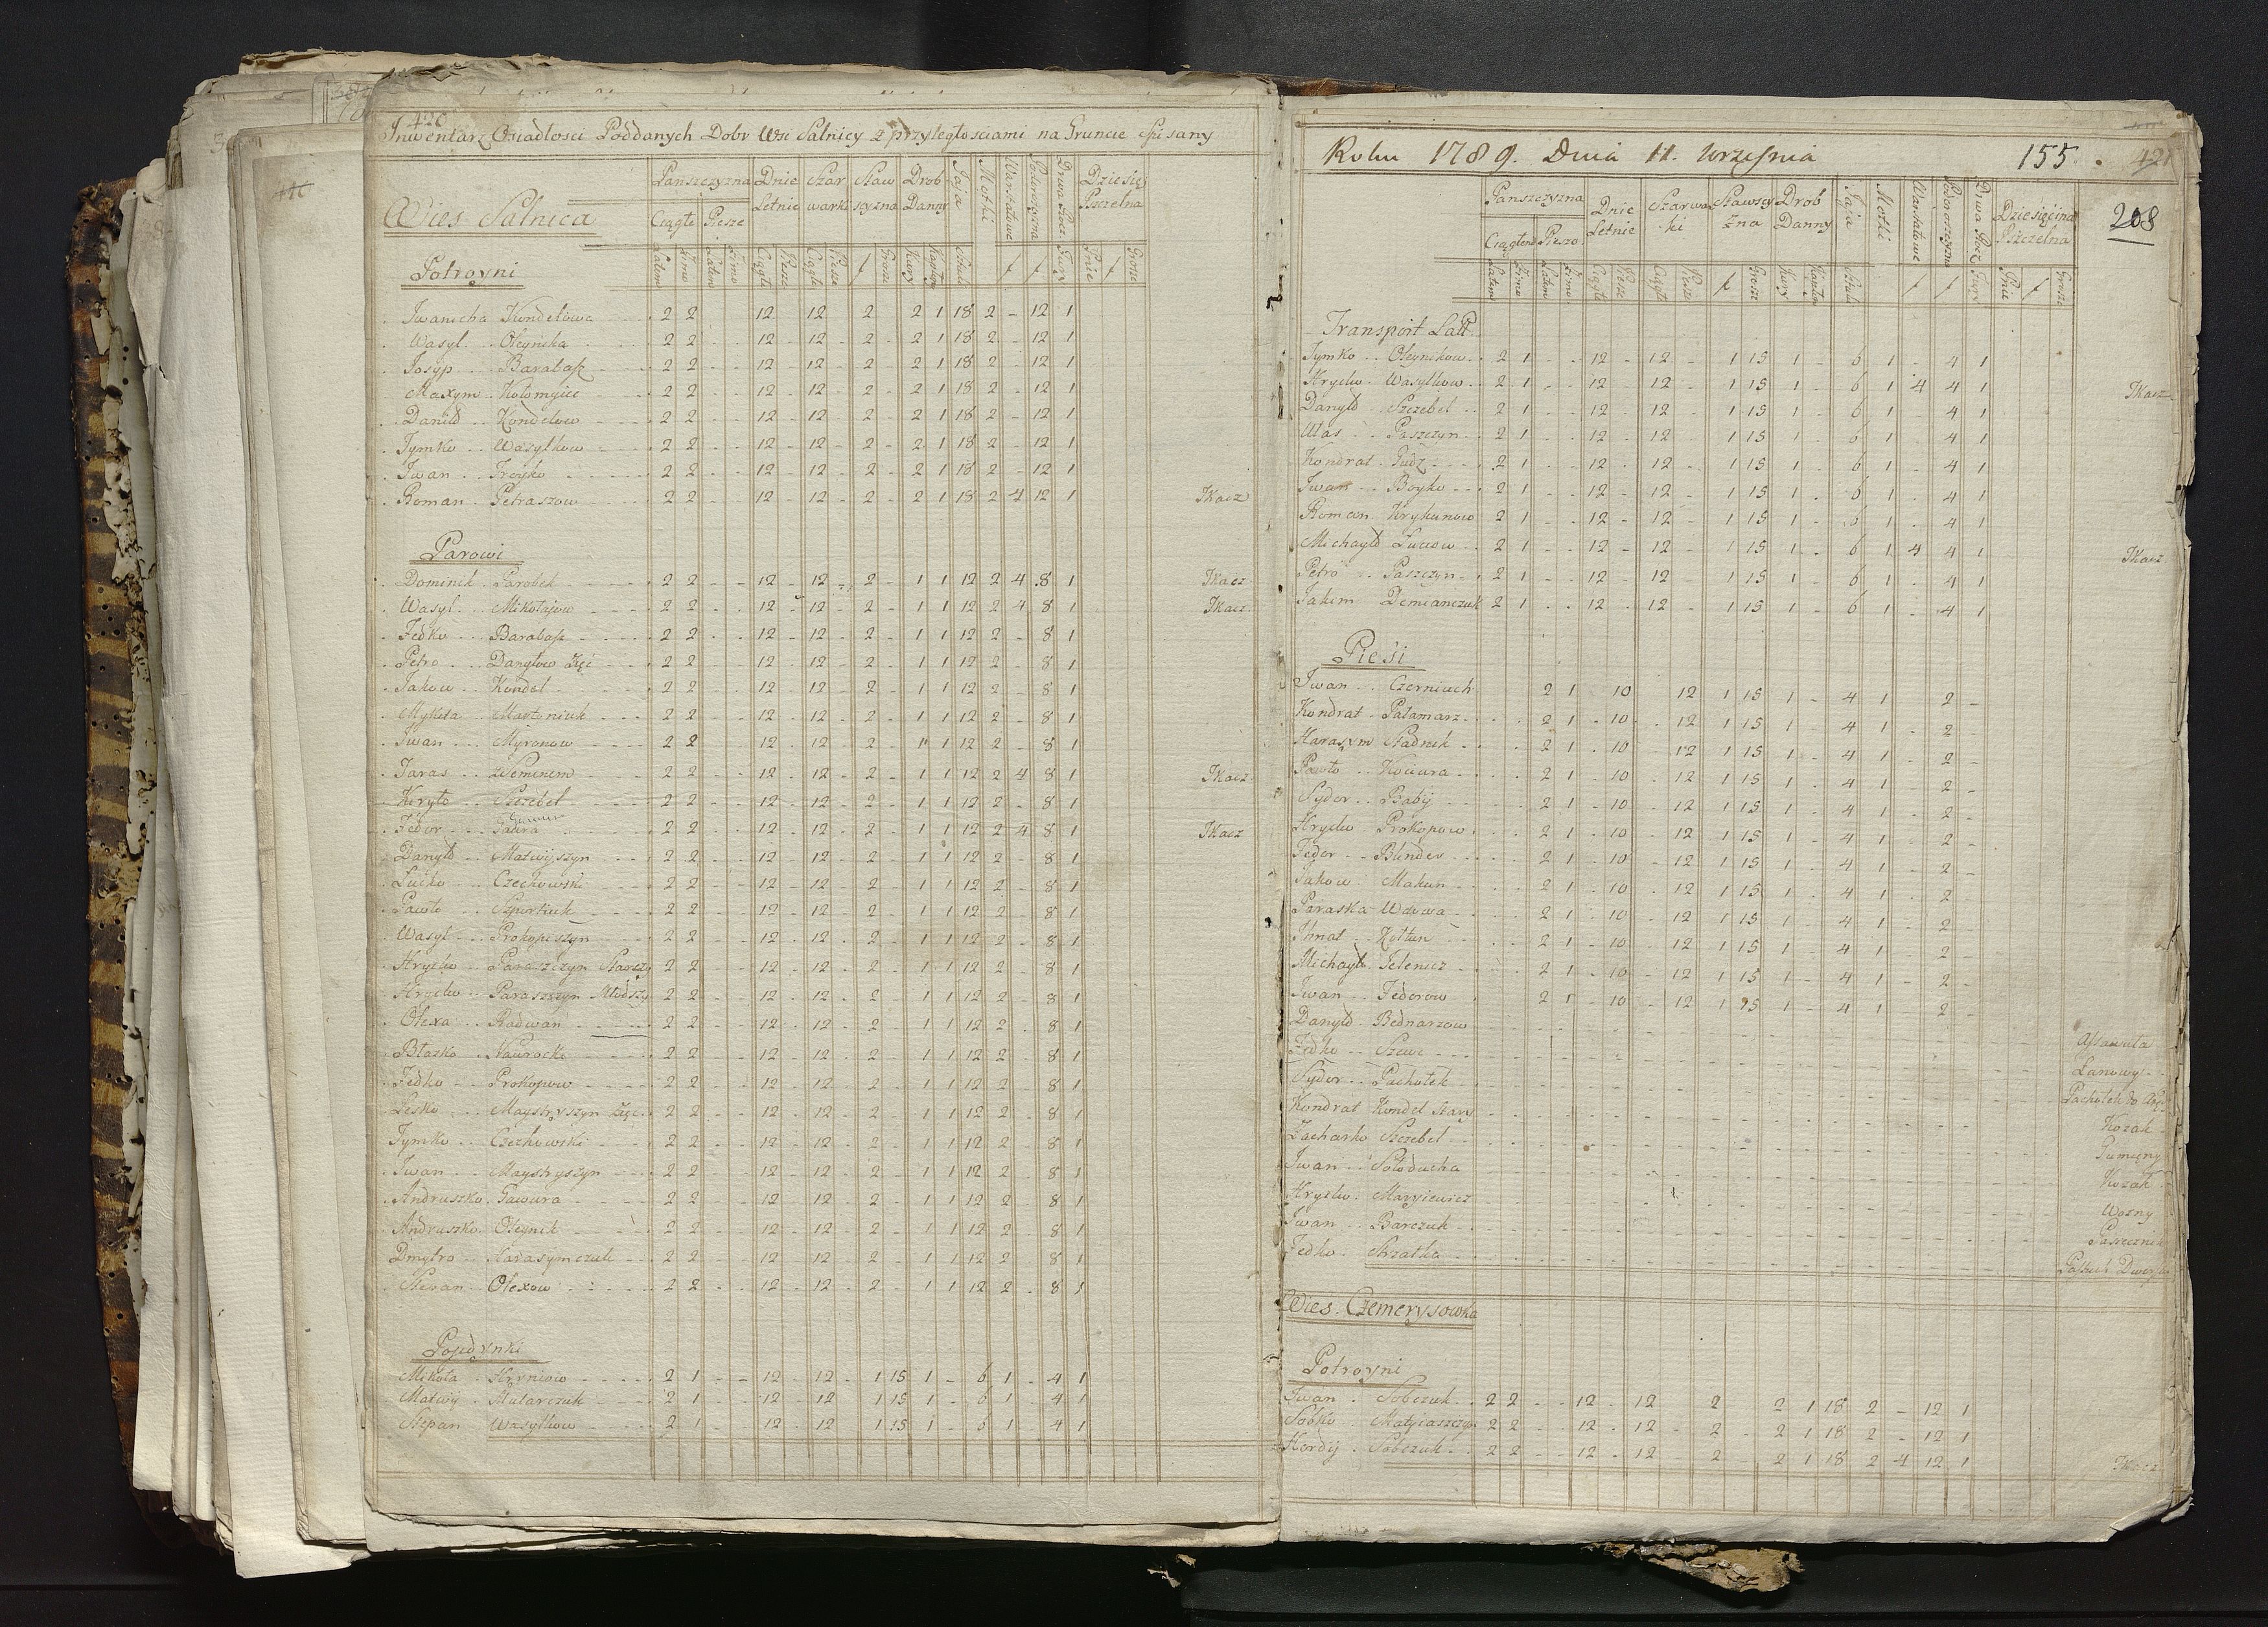 420
Inwentarz Osiadłosci Poddanych Dobr Wsi Salnicy z przyległosciami na Gruncie Spisany
Wies Salnica
Panszczyzna Dnie Letnie Szarwarki Stawsczyzna Drob Danny Jaja Motki Warsztatowe Drzewa Dziesięcina Pszczelna
Ciągłe Piesze
Latem Zimo Latem Zimo Ciągłe Piesze Ciągłe Piesze Grosze Kury Kapłony Sztuk Fury Pnie Grosze
Potroyni
Iwanicha Kondelowa 2 2 12 12 2 2 1 18 2 - 12 1
Wasyl Oleynika 2 2 12 - 12 - 2 - 2 1 18 2 - 12 1
Josyp Barabasz 2 2 12 - 12 - 2 - 2 1 18 2 - 12 1
Maxym Kołomyiec 2 2 12 - 12 - 2 - 2 1 18 2 - 12 1
Daniło Kondelow 2 2 12 - 12 - 2 - 2 1 18 2 - 12 1
Tymko Wasylkow 2 2 12 - 12 - 2 - 2 1 18 2 - 12 1
Iwan Troyko 2 2 12 - 12 - 2 - 2 1 18 2 - 12 1
Roman Petraszow 2 2 12 - 12 - 2 - 2 1 18 2 4 12 1 Tkacz
Parowi
Dominik Parobek 2 2 - - 12 - 12 - 2 - 1 1 12 2 4 8 1 Tkacz
Wasyl Mikołajow 2 2 - - 12 - 12 - 2 - 1 1 12 2 4 8 1 Tkacz
Fedko Barabasz 2 2 - - 12 - 12 - 2 - 1 1 12 2 - 8 1
Petro Danyłow Zięć 2 2 - - 12 - 12 - 2 - 1 1 12 2 - 8 1
Jakow Kondel 2 2 - - 12 - 12 - 2 - 1 1 12 2 - 8 1
Mykita Martyniuk 2 2 - - 12 - 12 - 2 - 1 1 12 2 - 8 1
Iwan Myronow 2 2 - - 12 - 12 - 2 - 1 1 12 2 - 8 1
Taras z Seminem 2 2 - - 12 - 12 - 2 - 1 1 12 2 4 8 1 Tkacz
Kiryło Szczebel 2 2 - - 12 - 12 - 2 - 1 1 12 2 - 8 1
Fedor 2 2 - - 12 - 12 - 2 - 1 1 12 2 4 8 1 Tkacz
Danyło Matwijszyn 2 2 - - 12 - 12 - 2 - 1 1 12 2 - 8 1
Lućko Czechowski 2 2 - - 12 - 12 - 2 - 1 1 12 2 - 8 1
Pawło 2 2 - - 12 - 12 - 2 - 1 1 12 2 - 8 1
Wasyl Prokopiszyn 2 2 - - 12 - 12 - 2 - 1 1 12 2 - 8 1
Hryćko Paraszczyn Starszy 2 2 - - 12 - 12 - 2 - 1 1 12 2 - 8 1
Hryćko Paraszczyn Młodszy 2 2 - - 12 - 12 - 2 - 1 1 12 2 - 8 1
Olexa Radwan 2 2 - - 12 - 12 - 2 - 1 1 12 2 - 8 1
Błazko Nawrocki 2 2 - - 12 - 12 - 2 - 1 1 12 2 - 8 1
Fedko Prokopow 2 2 - - 12 - 12 - 2 - 1 1 12 2 - 8 1
Lesko Maystryszyn Zięć 2 2 - - 12 - 12 - 2 - 1 1 12 2 - 8 1
Tymko Czechowski 2 2 - - 12 - 12 - 2 - 1 1 12 2 - 8 1
Iwan Maystryszyn 2 2 - - 12 - 12 - 2 - 1 1 12 2 - 8 1
Andruszko Gawura 2 2 - - 12 - 12 - 2 - 1 1 12 2 - 8 1
Andruszko Oleynik 2 2 - - 12 - 12 - 2 - 1 1 12 2 - 8 1
Dmytro Harasymczuk 2 2 - - 12 - 12 - 2 - 1 1 12 2 - 8 1
Stepan Olexow 2 2 - - 12 - 12 - 2 - 1 1 12 2 - 8 1
Pojedynki
Mikoła Hryniow 2 1 - - 12 - 12 - 1 15 1 - 6 1 - 4 1
Matwij Mularczuk 2 1 - - 12 - 12 1 15 1 - 6 1 - 4 1
Stepan Wasylkow 2 1 - - 12 - 12 1 15 1 - 6 1 - 4 1
Roku 1789. Dnia 11. Września 155. 421
208
Panszczyzna Dnie Letnie Szarwarki Stawszczyzna Drob Danny Jaja Motki Warsztatowe Dziesięcina Pszczelna
Ciągłem Pieszo
Latem Zimo Latem Zimo Ciągłe Piesze Ciągłe Piesze Grosze Kury Kapłon Sztuk Fury Pnie Grosze
Transport Latt
Tymko Oleynikow 2 1 - - 12 - 12 - 1 15 1 - 6 1 - 4 1
Hryćko Wasylkow 2 1 - - 12 - 12 - 1 15 1 - 6 1 4 4 1 Tkacz
Danyło Szczebel 2 1 - - 12 - 12 - 1 15 1 - 6 1 - 4 1
Ułas Paszczyn 2 1 - - 12 - 12 1 15 1 - 6 1 4 1
Kondrat Gudz 2 1 - - 12 - 12 - 1 15 1 - 6 1 - 4 1
Iwan Boyko 2 1 - - 12 - 12 - 1 15 1 - 6 1 - 4 1
Roman Krykunow 2 1 - - 12 - 12 - 1 15 1 - 6 1 - 4 1
Michayło Łuciow 2 1 - - 12 - 12 - 1 15 1 - 6 1 4 4 1 Tkacz
Petro Paszczyn 2 1 - - 12 - 12 1 15 1 - 6 1 - 4 1
Jakim Demianczuk 2 1 - - 12 - 12 1 15 1 - 6 1 - 4 1
Piesi
Iwan Czerniuch 2 1 10 12 1 15 1 - 4 1 2 -
Kondrat Pałamarz 2 1 - 10 - 12 1 15 1 - 4 1 - 2 -
Harasym Stadnik 2 1 - 10 - 12 1 15 1 - 4 1 - 2 -
Pawło Kociura 2 1 - 10 - 12 1 15 1 - 4 1 - 2 -
Sydor Babij 2 1 - 10 - 12 1 15 1 - 4 1 - 2 -
Hryćko Prokopow 2 1 - 10 - 12 1 15 1 - 4 1 - 2 -
Fedor Blinder 2 1 - 10 - 12 1 15 1 - 4 1 - 2 -
Jakow Makun 2 1 - 10 - 12 1 15 1 - 4 1 - 2
Paraska Wdowa 2 1 - 10 - 12 1 15 1 - 4 1 - 2 -
Ihnat Kołtun 2 1 - 10 - 12 1 15 1 - 4 1 - 2 -
Michayło Telenicz 2 1 - 10 - 12 1 15 1 - 4 1 - 2 -
Iwan Fedorow 2 1 - 10 - 12 1 15 1 - 4 1 - 2 -
Danyło Bednarzow Assawuła
Fedko Szewc Lanowy
Sydor Pachołek Pachołek do
Kondrat Kondel Stary Kozak
Zacharko Szczebel Gumięny
Iwan Sołoducha Kozak
Hryćko Maryiewicz Wozny
Iwan Barczuk Pasiecznik
Fedko Strzałka Pastuch
Wies Czemerysowka
Potroyni
Iwan Sobczuk 2 2 - - 12 - 12 2 2 1 18 2 - 12 1
Sobko Matyiaszczyn 2 2 - - 12 - 12 - 2 - 2 1 18 2 - 12 1
Hordij Sobczuk 2 2 - - 12 - 12 - 2 2 1 18 2 4 12 1 Tkacz